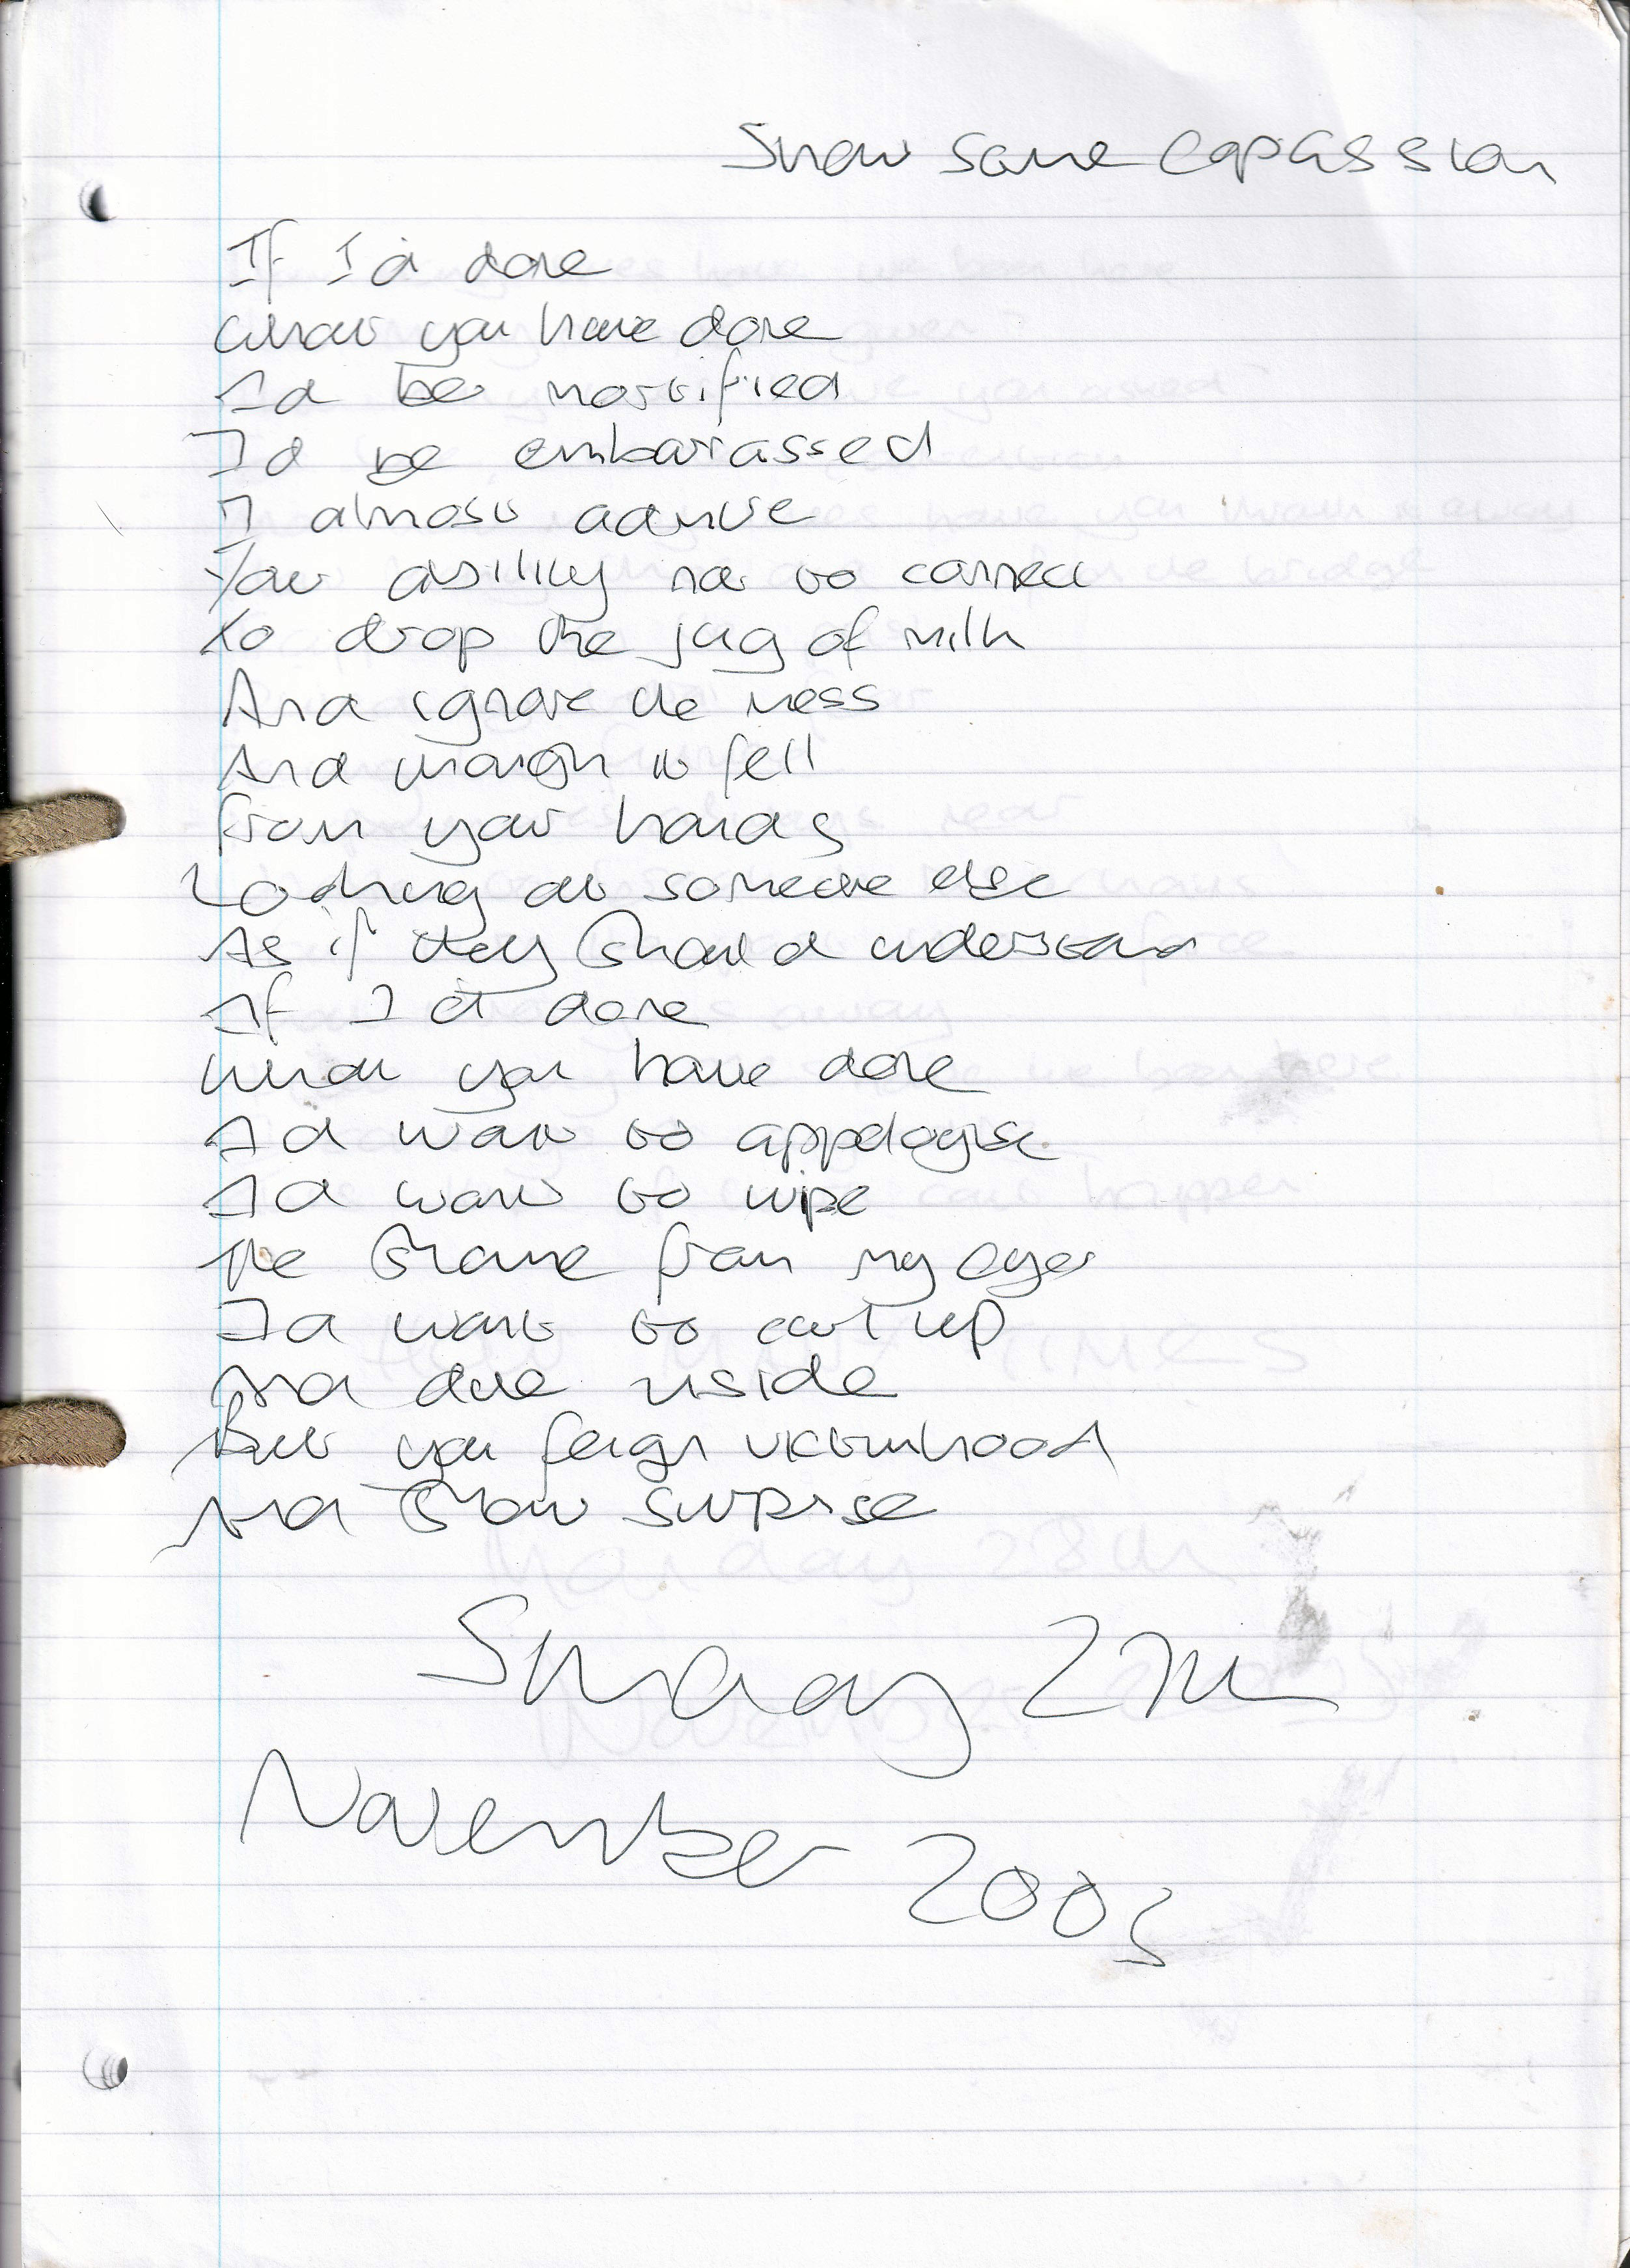 Show some copassion
If I'd done
What you have done
I'd be mortified
I'd be embarassed
I almost admire
Your ability not to connect
To drop the jug of milk
And ignore the mess
And though it fell
From your hands
Looking at someone else
As if they should understand
If I'd done
What you have done
I'd want to appologise
I'd want to wipe
The shame from my eyes
I'd want to curl up
And die inside
But you feign victimhood
And show surprise
Sunday 27th
November 2005